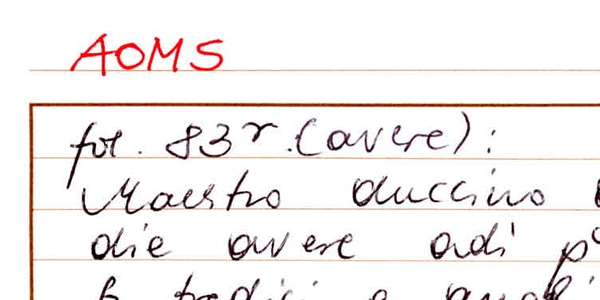 AOMS
fol. 83r. (avere):
Maestro duccino
die avere adi
tredici e